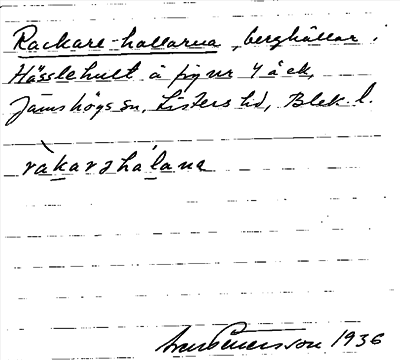 Rackare-hallarna, berghällar i
Hässlehult å fig nr 4 å ek,
Jämshögs sn, Listers hd, Blek. l.
ràkarshálana
1936